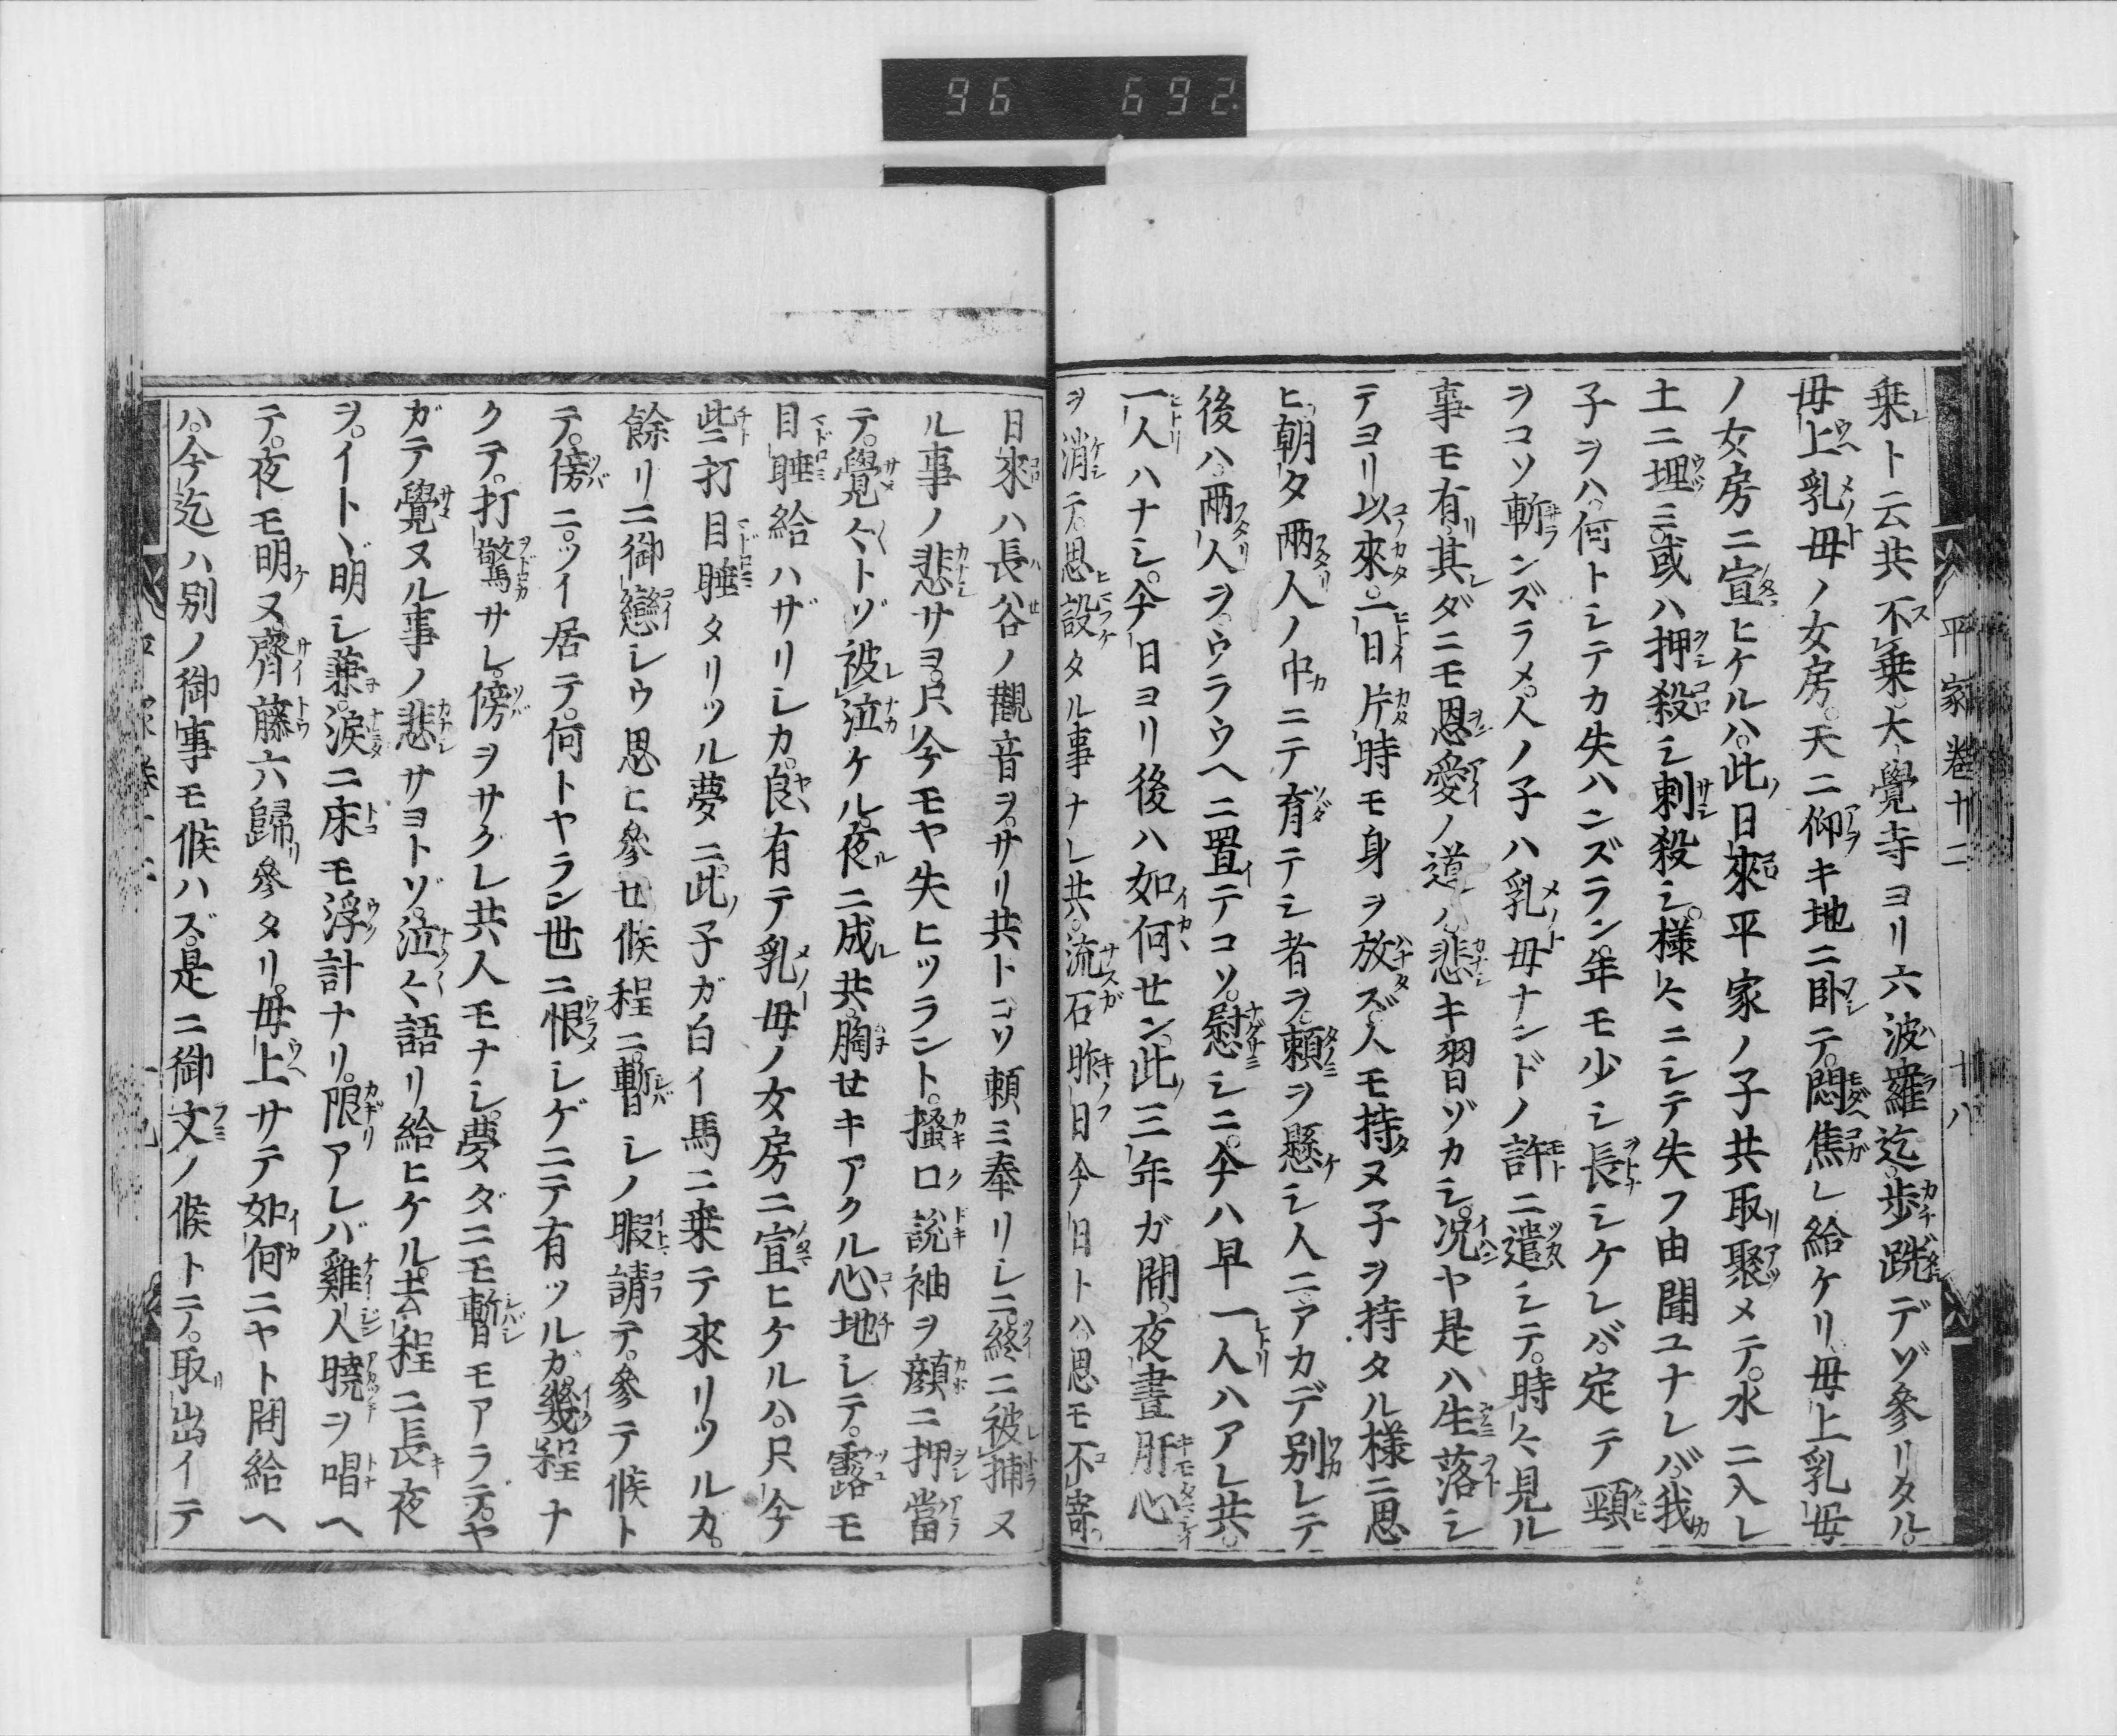 96 692
平家巻廿二 十八
乗ト云共不乗。大覺寺ヨリ六波羅迄。歩跣デゾ參リタル。
母上乳母ノ女房。天ニ仰キ地ニ臥テ。悶焦レ給ケリ。母上乳母
ノ女房ニ宣ヒケルハ。此日來平家ノ子共取聚メテ。水ニ入レ
土ニ埋ミ。或ハ押殺シ刺殺シ。様々ニシテ失フ由聞ユナレバ。我
子ヲハ。何トシテカ失ハンズラン。年モ少シ長シケレバ。定テ頸
ヲコソ斬ンズラメ。人ノ子ハ乳母ナンドノ許ニ遣シテ。時々見ル
事モ有。其ダニモ恩愛ノ道ハ。悲キ習ゾカシ。况ヤ是ハ生落シ
テヨリ以來。一日片時モ身ヲ放ズ。人モ持ヌ子ヲ持タル様ニ思
ヒ。朝タ兩人ノ中ニテ育テシ者ヲ。頼ヲ懸シ人ニアカデ別レテ
後ハ。兩人ヲ。ウラウヘニ置テコソ。慰シニ。今ハ早一人ハアレ共。
一人ハナシ。今日ヨリ後ハ如何セン。此三年ガ間。夜晝肝心
ヲ消テ。思設タル事ナレ共。流石昨日今日トハ。思モ不寄。
日來ハ長谷ノ觀音ヲ。サリ共トコソ頼ミ奉リシニ。終ニ被捕ヌ
ル事ノ悲サヨ。只今モヤ失ヒツラント。掻口説袖ヲ顔ニ押當
テ。覺々トゾ被泣ケル。夜ニ成レ共。胸セキアクル心地シテ。露モ
目睡給ハザリシカ。良有テ乳母ノ女房ニ宣ヒケルハ。只今
些ニ打目睡タリツル夢ニ。此子ガ白イ馬ニ乗テ來リツルカ。
餘リニ御戀シウ思ヒ參セ候程ニ。暫シノ暇請テ。參テ候ト
テ。傍ニ。ツイ居テ。何トヤラン世ニ恨シゲニテ有ツルガ。幾程ナ
クテ。打驚サレ。傍ヲサクレ共人モナシ。夢ダニモ暫モアラデ。ヤ
ガテ覺ヌル事ノ悲サヨトゾ。泣々語リ給ヒケル。去程ニ長夜
ヲ。イトヾ明シ兼。涙ニ床モ浮計ナリ。限アレバ雞人曉ヲ唱ヘ
テ。夜モ明ヌ。齊藤六歸リ參タリ。母上サテ如何ニヤト問給ヘ
ハ。今迄ハ別ノ御事モ候ハズ。是ニ御文ノ候トテ。取出イテ